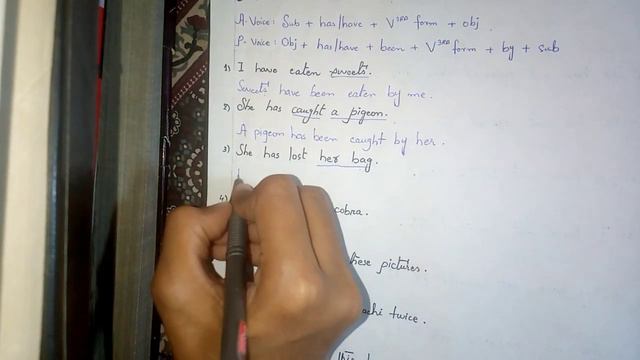 A-Voice: Sub + has/have + V³ᴿᴰ form + obj.
P-Voice: Obj + has/have + been + V³ᴿᴰ form + by + sub
1) I have eaten sweets.
Sweets have been eaten by me.
2) She has caught a pigeon.
A pigeon has been caught by her.
3) She has lost her bag.
4) cobra.
these pictures.
twice.